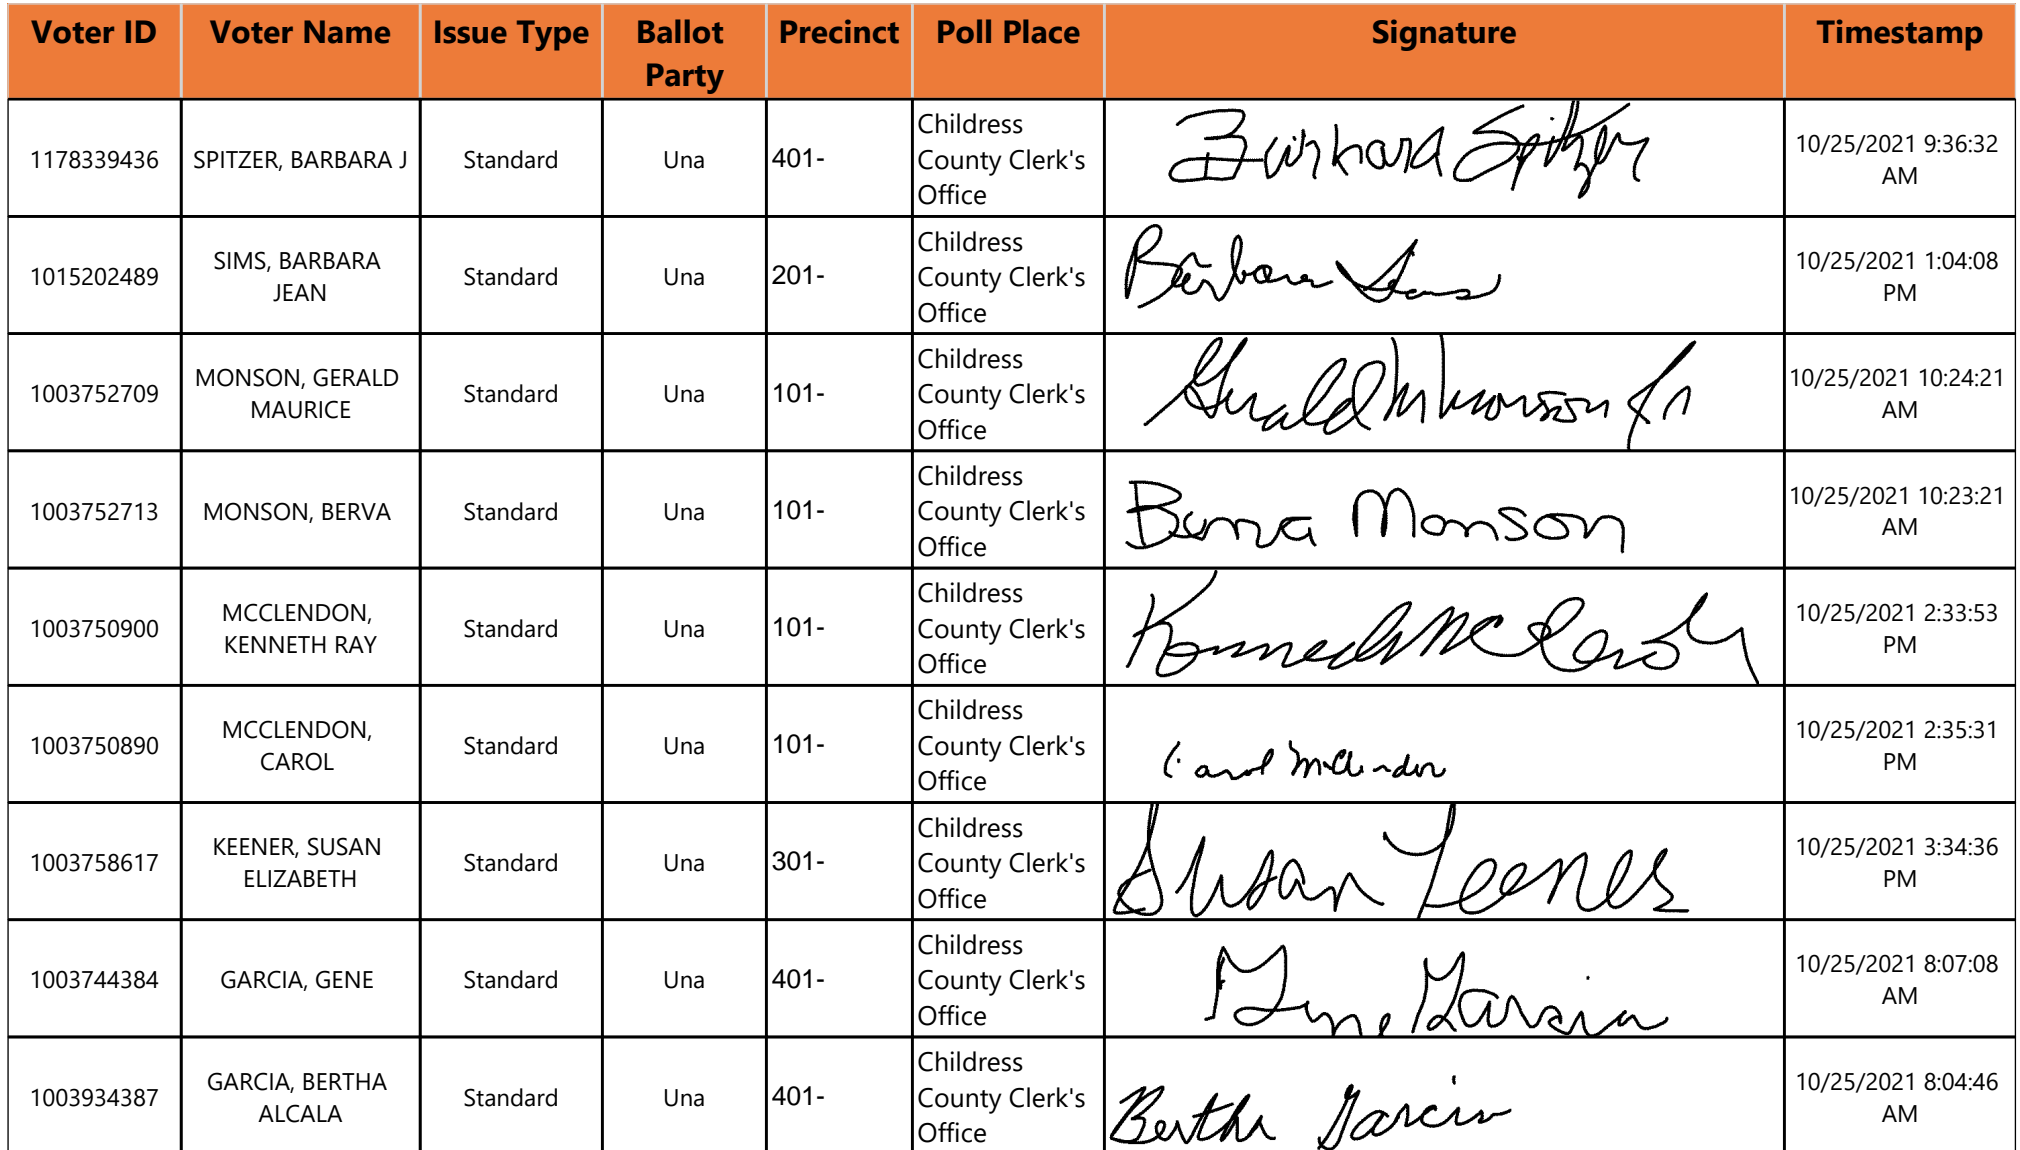 Voter ID Voter Name Issue Type Ballot Party Precinct Poll Place Signature Timestamp
1178339436 SPITZER, BARBARA J Standard Una 401- Childress County Clerk's Office Barbara Spitzer 10/25/2021 9:36:32 AM
1015202489 SIMS, BARBARA JEAN Standard Una 201- Childress County Clerk's Office Barbara Sims 10/25/2021 1:04:08 PM
1003752709 MONSON, GERALD MAURICE Standard Una 101- Childress County Clerk's Office Gerald M Monson Jr 10/25/2021 10:24:21 AM
1003752713 MONSON, BERVA Standard Una 101- Childress County Clerk's Office Berva Monson 10/25/2021 10:23:21 AM
1003750900 MCCLENDON, KENNETH RAY Standard Una 101- Childress County Clerk's Office Kenneth McClendon 10/25/2021 2:33:53 PM
1003750890 MCCLENDON, CAROL Standard Una 101- Childress County Clerk's Office Carol McClendon 10/25/2021 2:35:31 PM
1003758617 KEENER, SUSAN ELIZABETH Standard Una 301- Childress County Clerk's Office Susan Keener 10/25/2021 3:34:36 PM
1003744384 GARCIA, GENE Standard Una 401- Childress County Clerk's Office Gene Garcia 10/25/2021 8:07:08 AM
1003934387 GARCIA, BERTHA ALCALA Standard Una 401- Childress County Clerk's Office Bertha Garcia 10/25/2021 8:04:46 AM